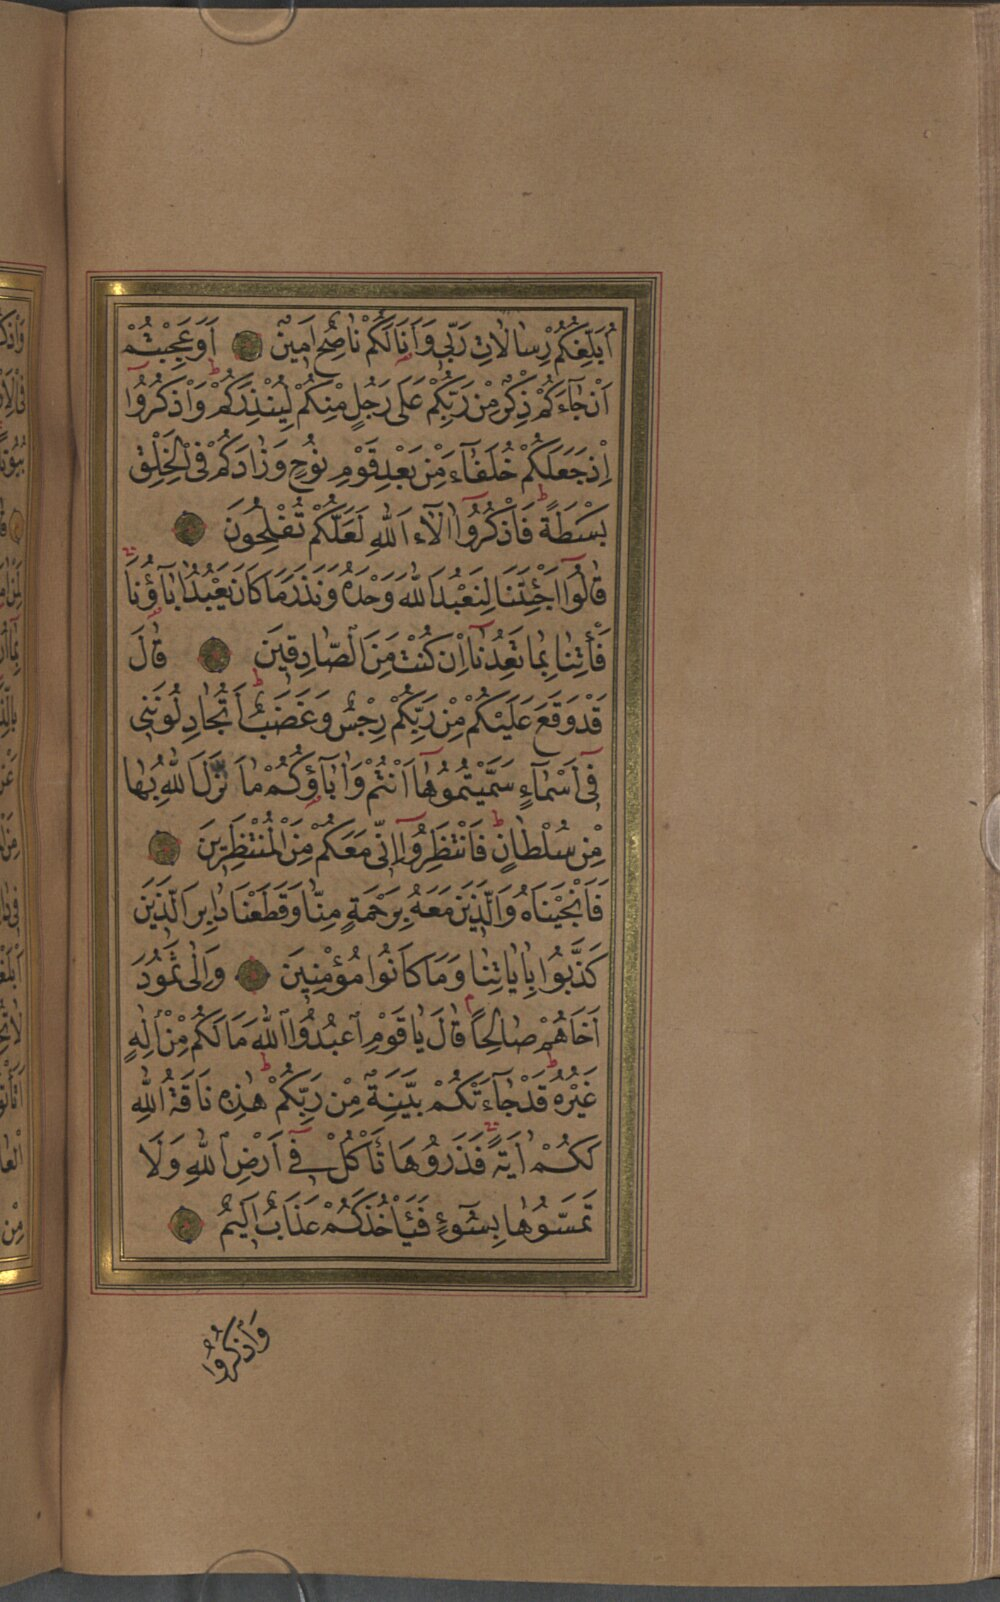 اُبَلِّغُكُمْ رِسَالَاتِ رَبِّي وَاَنَا لَكُمْ نَاصِحٌ اَمِينٌ اَوَعَجِبْتُمْ
اَنْ جَآءَكُمْ ذِكْرٌ مِنْ رَبِّكُمْ عَلَى رَجُلٍ مِنْكُمْ لِيُنْذِرَكُمْ وَاذْكُرُوٓا
اِذْ جَعَلَكُمْ خُلَفَآءَ مِنْ بَعْدِ قَوْمِ نُوحٍ وَزَادَكُمْ فِي الْخَلْقِ
بَسْطَةً فَاذْكُرُوٓا اٰلَآءَ اللّٰهِ لَعَلَّكُمْ تُفْلِحُونَ
قَالُوٓا اَجِئْتَنَا لِنَعْبُدَ اللّٰهَ وَحْدَهُ وَنَذَرَ مَا كَانَ يَعْبُدُ اٰبَآؤُنَا
فَأْتِنَا بِمَا تَعِدُنَآ اِنْ كُنْتَ مِنَ الصَّادِقِينَ قَالَ
قَدْ وَقَعَ عَلَيْكُمْ مِنْ رَبِّكُمْ رِجْسٌ وَغَضَبٌ اَتُجَادِلُونَنِي
فِيٓ اَسْمَآءٍ سَمَّيْتُمُوهَآ اَنْتُمْ وَاٰبَآؤُكُمْ مَا نَزَّلَ اللّٰهُ بِهَا
مِنْ سُلْطَانٍ فَانْتَظِرُوٓا اِنِّي مَعَكُمْ مِنَ الْمُنْتَظِرِينَ
فَاَنْجَيْنَاهُ وَالَّذِينَ مَعَهُ بِرَحْمَةٍ مِنَّا وَقَطَعْنَا دَابِرَ الَّذِينَ
كَذَّبُوا بِاٰيَاتِنَا وَمَا كَانُوا مُؤْمِنِينَ وَاِلٰى ثَمُودَ
اَخَاهُمْ صَالِحًا قَالَ يَا قَوْمِ اعْبُدُوا اللّٰهَ مَا لَكُمْ مِنْ اِلٰهٍ
غَيْرُهُ قَدْ جَآءَتْكُمْ بَيِّنَةٌ مِنْ رَبِّكُمْ هٰذِهِ نَاقَةُ اللّٰهِ
لَكُمْ اٰيَةً فَذَرُوهَا تَأْكُلْ فِيٓ اَرْضِ اللّٰهِ وَلَا
تَمَسُّوهَا بِسُوٓءٍ فَيَأْخُذَكُمْ عَذَابٌ اَلِيمٌ
وَاذْكُرُوا